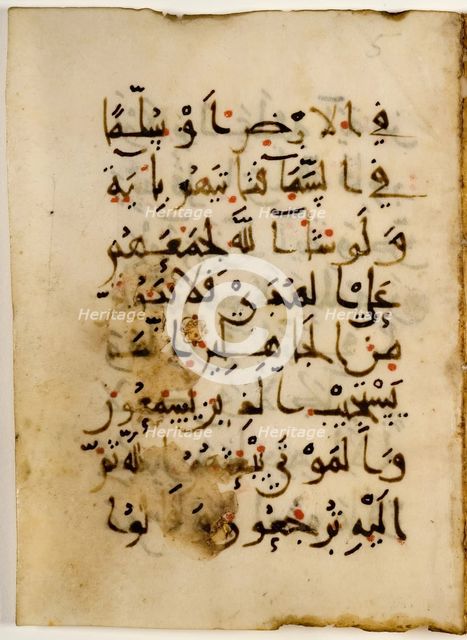 5
في الارض او سلما
في السما فتاتيهم باية
ولو شا الله لجمعهم
على الهدى فلا تكونن
من الجهلين انما
يستجيب الذين يسمعون
والموتى يبعثهم الله ثم
اليه يرجعون وقالوا
Heritage Heritage
Heritage Heritage Heritage
©
Heritage Heritage